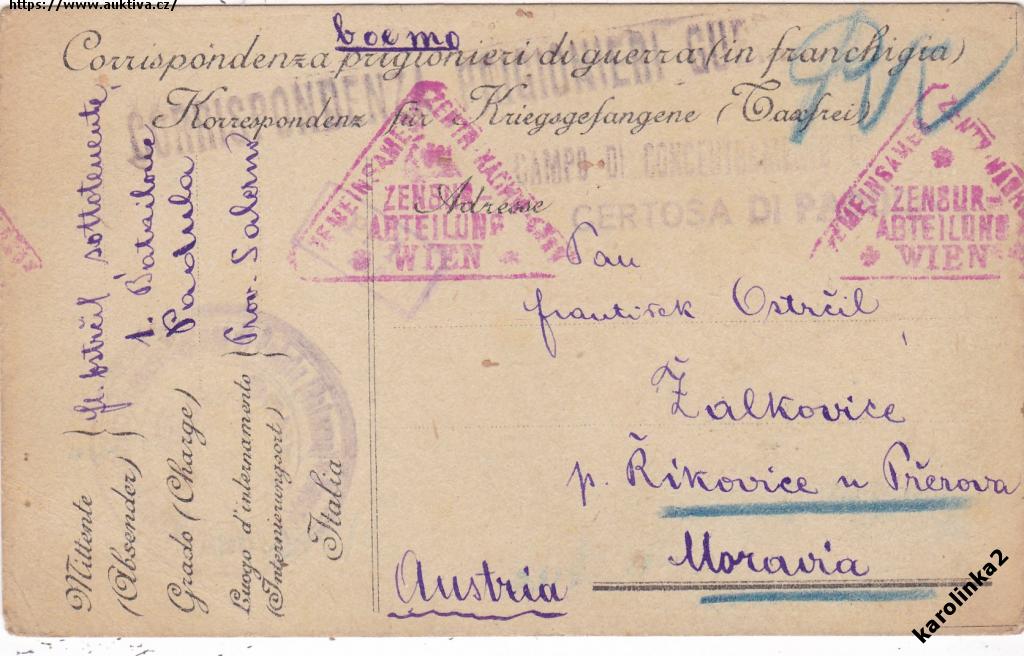 https://www.auktiva.cz/
boemo
Corrispondenza prigionieri di guerra (in franchigia)
CORRISPONDENZA PRIGIONIERI GUE
Korrespondenz für Kriegsgefangene (Taxfrei)
CAMPO DI CONCENTRAMENTO
CERTOSA DI PA
Adresse
ZENSUR-
ABTEILUNG
WIEN
GEMEINSAMES ZENTR. NACHW.
ZENSUR-
ABTEILUNG
WIEN
GEMEINSAMES ZENTR. NACHW
Pan
František Ostrčil
Žalkovice
p. Říkovice u Přerova
Moravia
Austria
Mittente
(Absender)
fr. Ostrčil sottotenente,
Grado (Charge)
1. Batail
Padula
Luogo d'internamento
(Internierungsort)
Prov. Salerno
Italia
karolinka2